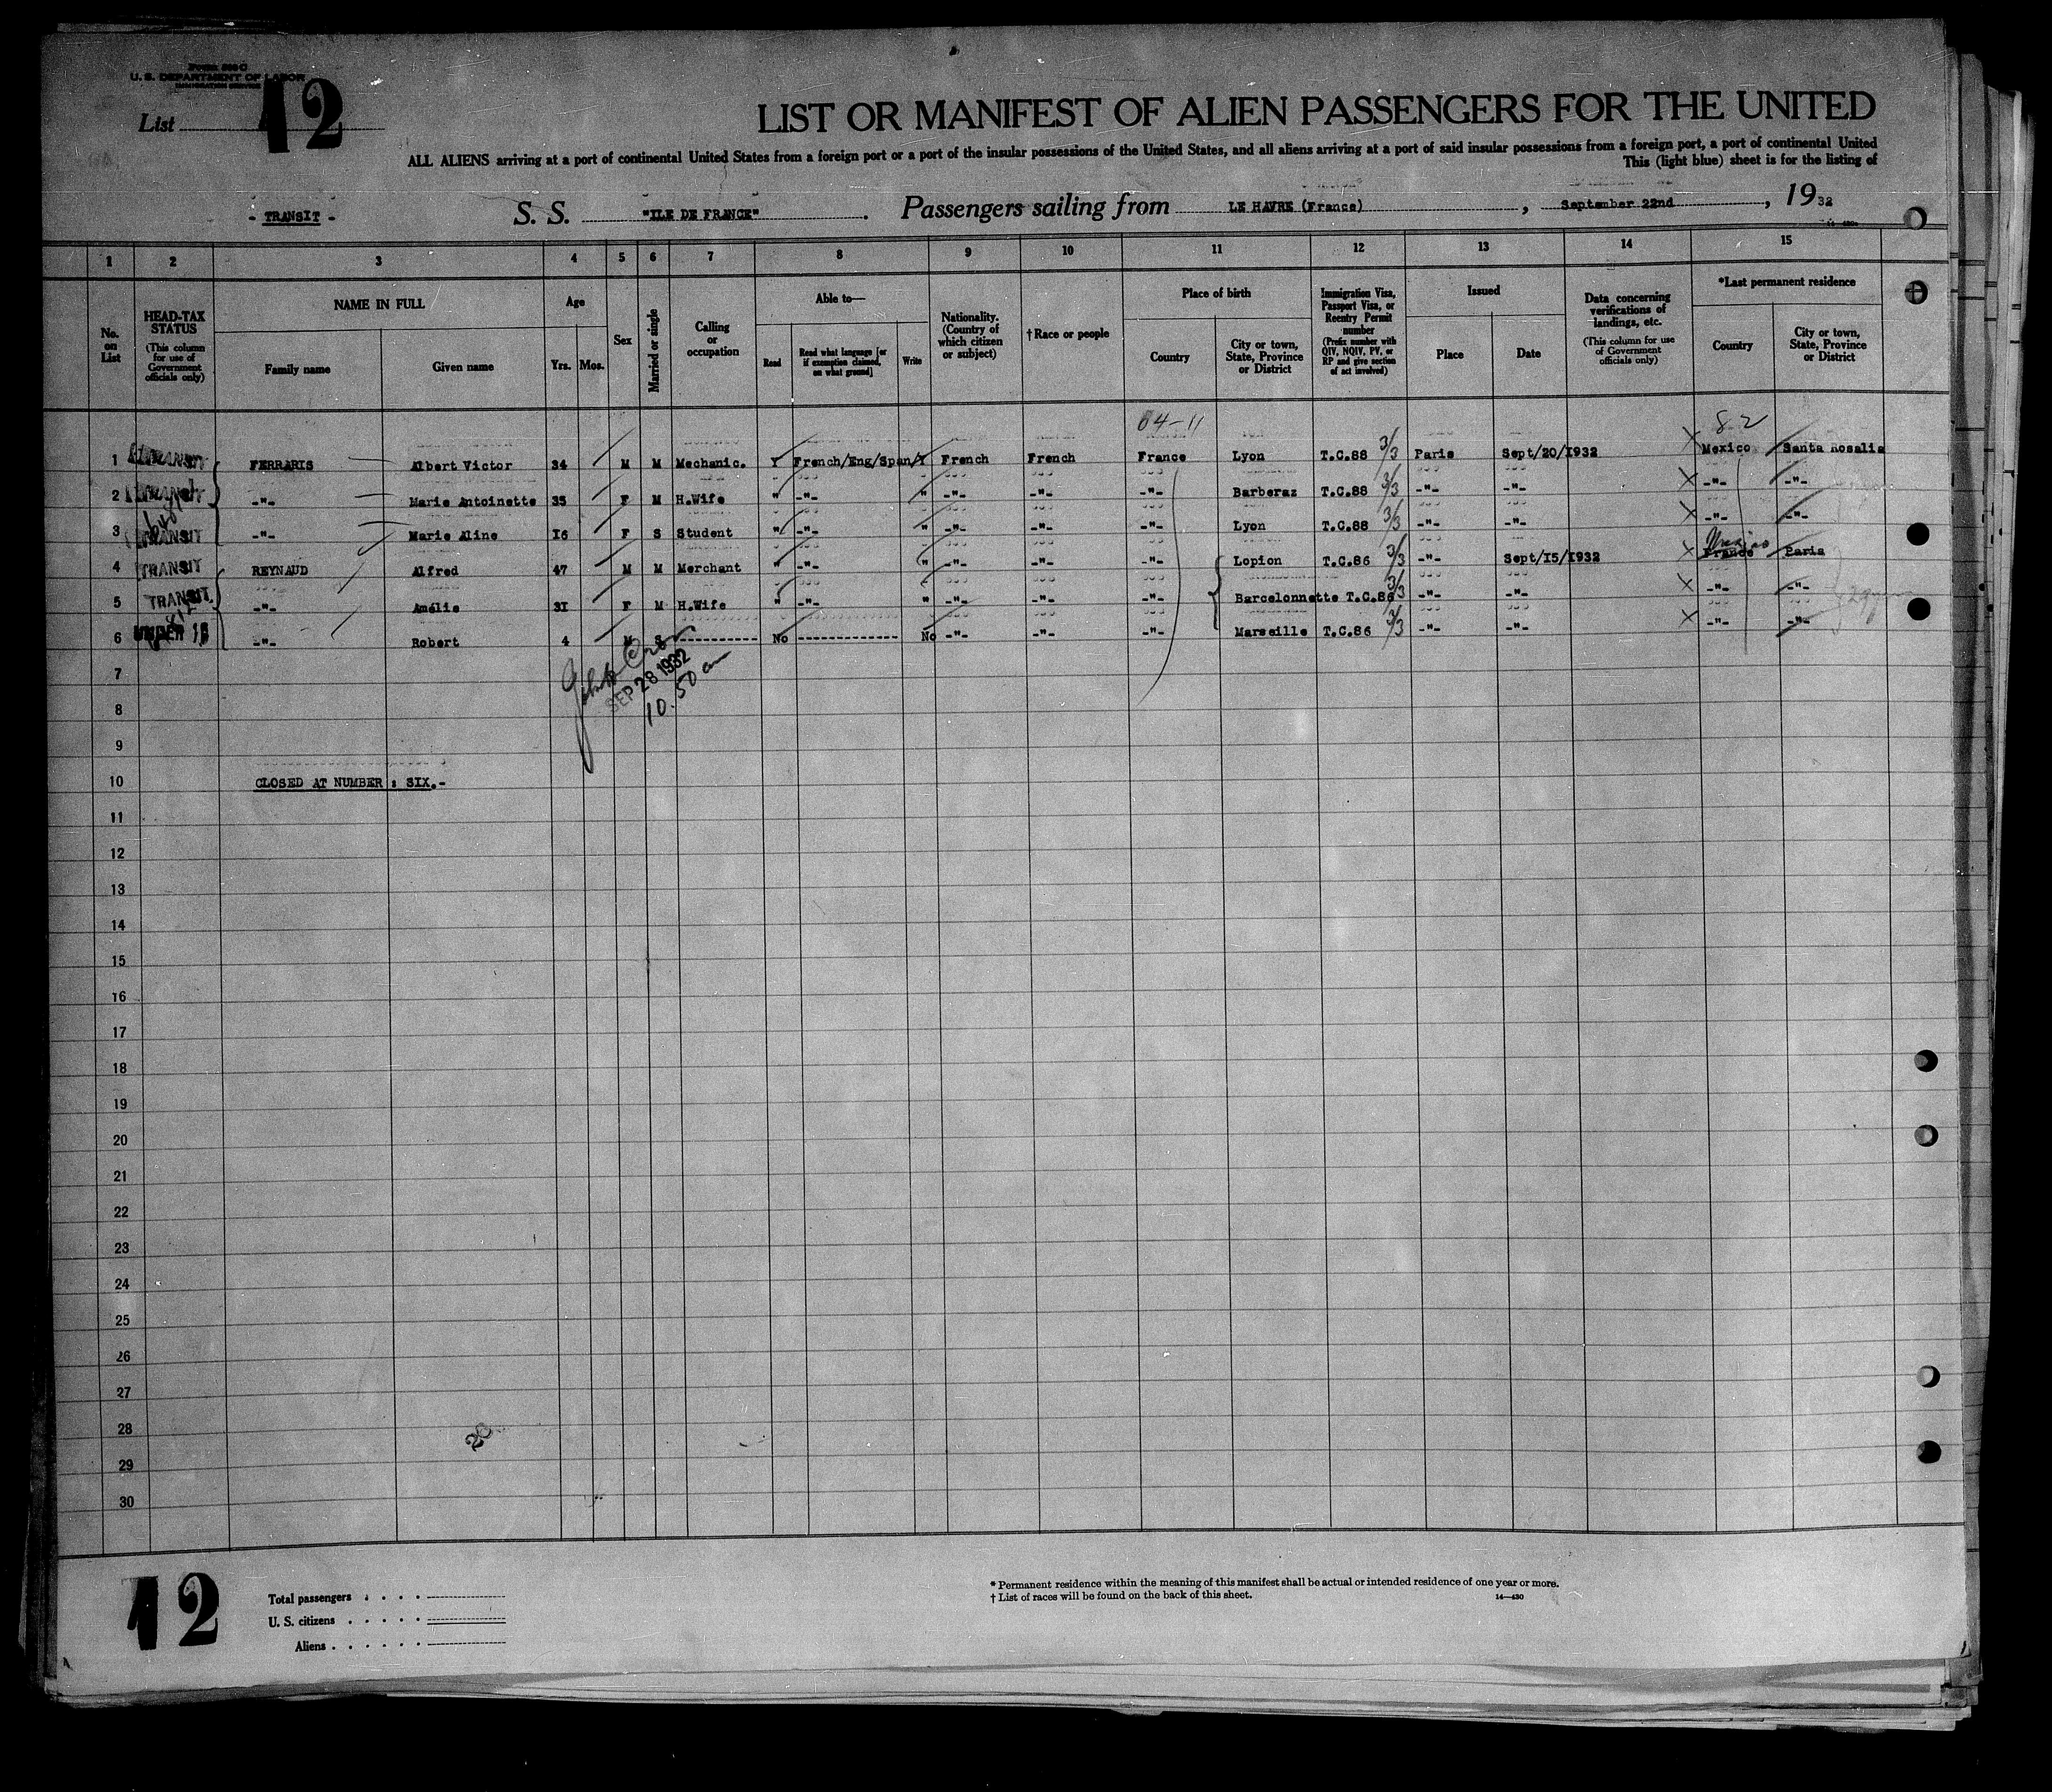 Form 500 C
U. S. DEPARTMENT OF LABOR
IMMIGRATION SERVICE
List 12
LIST OR MANIFEST OF ALIEN PASSENGERS FOR THE UNITED
ALL ALIENS arriving at a port of continental United States from a foreign port or a port of the insular possessions of the United States, and all aliens arriving at a port of said insular possessions from a foreign port, a port of continental United
This (light blue) sheet is for the listing of
- TRANSIT - S. S. "ILE DE FRANCE" . Passengers sailing from LE HAVRE (France) , September 22nd , 1932
1 2 3 4 5 6 7 8 9 10 11 12 13 14 15
No. on List
HEAD-TAX STATUS (This column for use of Government officials only)
NAME IN FULL
Family name Given name
Age
Yrs. Mos.
Sex
Married or single
Calling or occupation
Able to—
Read Read what language [or if exemption claimed, on what ground] Write
Nationality. (Country of which citizen or subject)
†Race or people
Place of birth
Country City or town, State, Province or District
Immigration Visa, Passport Visa, or Reentry Permit number (Prefix number with QIV, NQIV, PV, or RP and give section of act involved)
Issued
Place Date
Data concerning verifications of landings, etc. (This column for use of Government officials only)
*Last permanent residence
Country City or town, State, Province or District
64-11 82
1 TRANSIT FERRARIS Albert Victor 34 M M Mechanic. Y French/Eng/Span/Y French French France Lyon T.C.88 3/3 Paris Sept/20/1932 Mexico Santa Rosalia
2 TRANSIT -"- Marie Antoinette 35 F M H.Wife " -"- " -"- -"- -"- Barberaz T.C.88 3/3 -"- -"- -"- -"-
3 TRANSIT -"- Marie Aline 16 F S Student " -"- " -"- -"- -"- Lyon T.C.88 3/3 -"- -"- -"- -"-
4 TRANSIT REYNAUD Alfred 47 M M Merchant " -"- " -"- -"- -"- Lopion T.C.86 3/3 -"- Sept/15/1932 France Mexico Paris
5 TRANSIT -"- Amélie 31 F M H.Wife " -"- " -"- -"- -"- Barcelonnette T.C.86 3/3 -"- -"- -"- -"-
6 UNDER 16 -"- Robert 4 M S ----------- No -------------- No -"- -"- -"- Marseille T.C.86 3/3 -"- -"- -"- -"-
7
SEP 28 1932
8
10.50 am
9
10 CLOSED AT NUMBER : SIX.-
11
12
13
14
15
16
17
18
19
20
21
22
23
24
25
26
27
28
29
30
12
Total passengers . . . .
U. S. citizens . . . . .
Aliens . . . . . .
* Permanent residence within the meaning of this manifest shall be actual or intended residence of one year or more.
† List of races will be found on the back of this sheet. 14—430